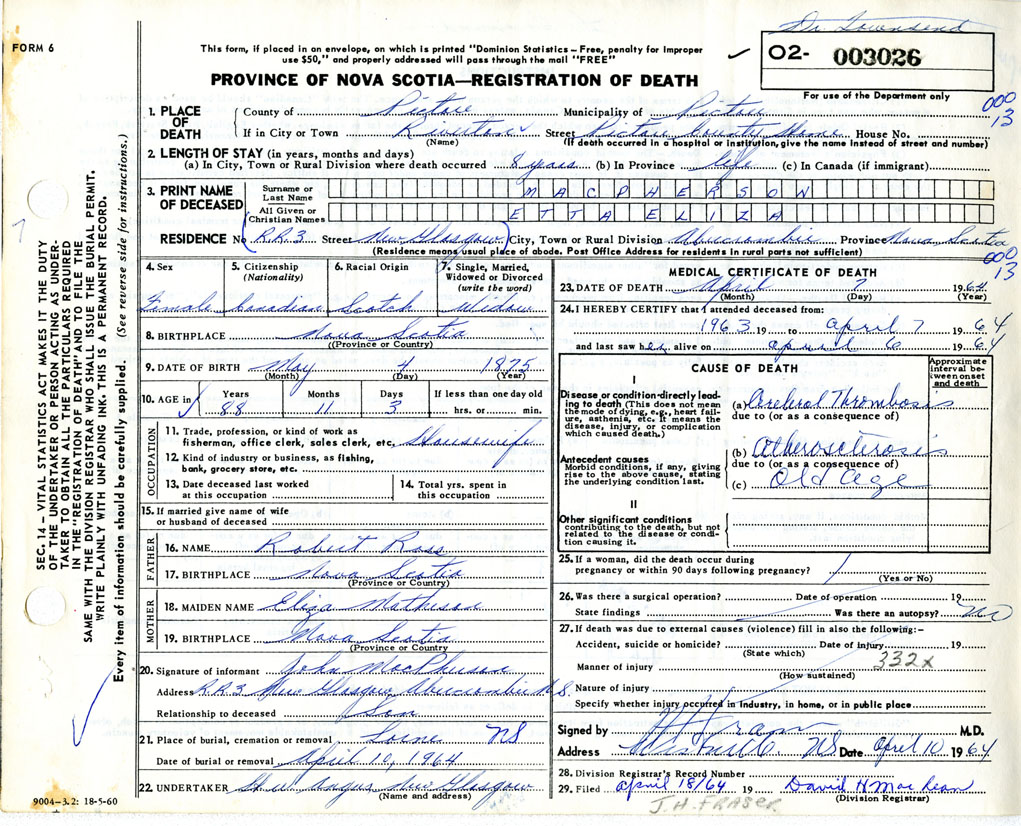 Dr Townsend
FORM 6
This form, if placed in an envelope, on which is printed "Dominion Statistics – Free, penalty for improper
use $50," and properly addressed will pass through the mail "FREE"
✓ O2- 003026
For use of the Department only
PROVINCE OF NOVA SCOTIA—REGISTRATION OF DEATH
000
13
1. PLACE OF DEATH
County of Pictou Municipality of Pictou
If in City or Town Riverton Street Pictou County Home House No.
(Name) (If death occurred in a hospital or institution, give the name instead of street and number)
2. LENGTH OF STAY (in years, months and days)
(a) In City, Town or Rural Division where death occurred 8 years (b) In Province Life (c) In Canada (if immigrant)
3. PRINT NAME OF DECEASED
Surname or Last Name MACPHERSON
All Given or Christian Names ETTA ELIZA
RESIDENCE No. R.R.3 Street New Glasgow City, Town or Rural Division Abercrombie Province Nova Scotia
(Residence means usual place of abode. Post Office Address for residents in rural parts not sufficient)
000
13
4. Sex
Female
5. Citizenship
(Nationality)
Canadian
6. Racial Origin
Scotch
7. Single, Married,
Widowed or Divorced
(write the word)
Widow
8. BIRTHPLACE Nova Scotia
(Province or Country)
9. DATE OF BIRTH May 4 1875
(Month) (Day) (Year)
10. AGE in Years Months Days If less than one day old
88 11 3 hrs. or min.
OCCUPATION
11. Trade, profession, or kind of work as
fisherman, office clerk, sales clerk, etc. Housewife
12. Kind of industry or business, as fishing,
bank, grocery store, etc.
13. Date deceased last worked
at this occupation
14. Total yrs. spent in
this occupation
15. If married give name of wife
or husband of deceased
FATHER
16. NAME Robert Ross
17. BIRTHPLACE Nova Scotia
(Province or Country)
MOTHER
18. MAIDEN NAME Eliza Matheson
19. BIRTHPLACE Nova Scotia
(Province or Country
20. Signature of informant John MacPherson
Address R.R.3 New Glasgow Abercrombie N.S.
Relationship to deceased Son
21. Place of burial, cremation or removal Lorne NS
Date of burial or removal April 10, 1964
22. UNDERTAKER H. W. Angus New Glasgow
(Name and address)
9004-3.2: 18-5-60
MEDICAL CERTIFICATE OF DEATH
23. DATE OF DEATH April 7 1964
(Month) (Day) (Year)
24. I HEREBY CERTIFY that I attended deceased from:
1963 19 to April 7 1964
and last saw her alive on April 6 1964
CAUSE OF DEATH
Approximate interval between onset and death
I
Disease or condition directly leading to death (This does not mean the mode of dying, e.g., heart failure, asthenia, etc. It means the disease, injury, or complication which caused death.)
(a) Cerebral Thrombosis
due to (or as a consequence of)
Antecedent causes
Morbid conditions, if any, giving rise to the above cause, stating the underlying condition last.
(b) Atherosclerosis
due to (or as a consequence of)
(c) Old Age
II
Other significant conditions
contributing to the death, but not related to the disease or condition causing it.
25. If a woman, did the death occur during
pregnancy or within 90 days following pregnancy?
(Yes or No)
26. Was there a surgical operation? Date of operation 19
State findings Was there an autopsy? No
27. If death was due to external causes (violence) fill in also the following:–
Accident, suicide or homicide? Date of injury 19
(State which)
332x
Manner of injury
(How sustained)
Nature of injury
Specify whether injury occurred in industry, in home, or in public place
Signed by M.D.
Address NS Date April 10 1964
28. Division Registrar's Record Number
29. Filed April 18/64 19 David H MacLean
(Division Registrar)
J.H. FRASER
SEC. 14 – VITAL STATISTICS ACT MAKES IT THE DUTY
OF THE UNDERTAKER OR PERSON ACTING AS UNDER-
TAKER TO OBTAIN ALL THE PARTICULARS REQUIRED
IN THE "REGISTRATION OF DEATH" AND TO FILE THE
SAME WITH THE DIVISION REGISTRAR WHO SHALL ISSUE THE BURIAL PERMIT.
WRITE PLAINLY WITH UNFADING INK. THIS IS A PERMANENT RECORD.
Every item of information should be carefully supplied. (See reverse side for instructions.)